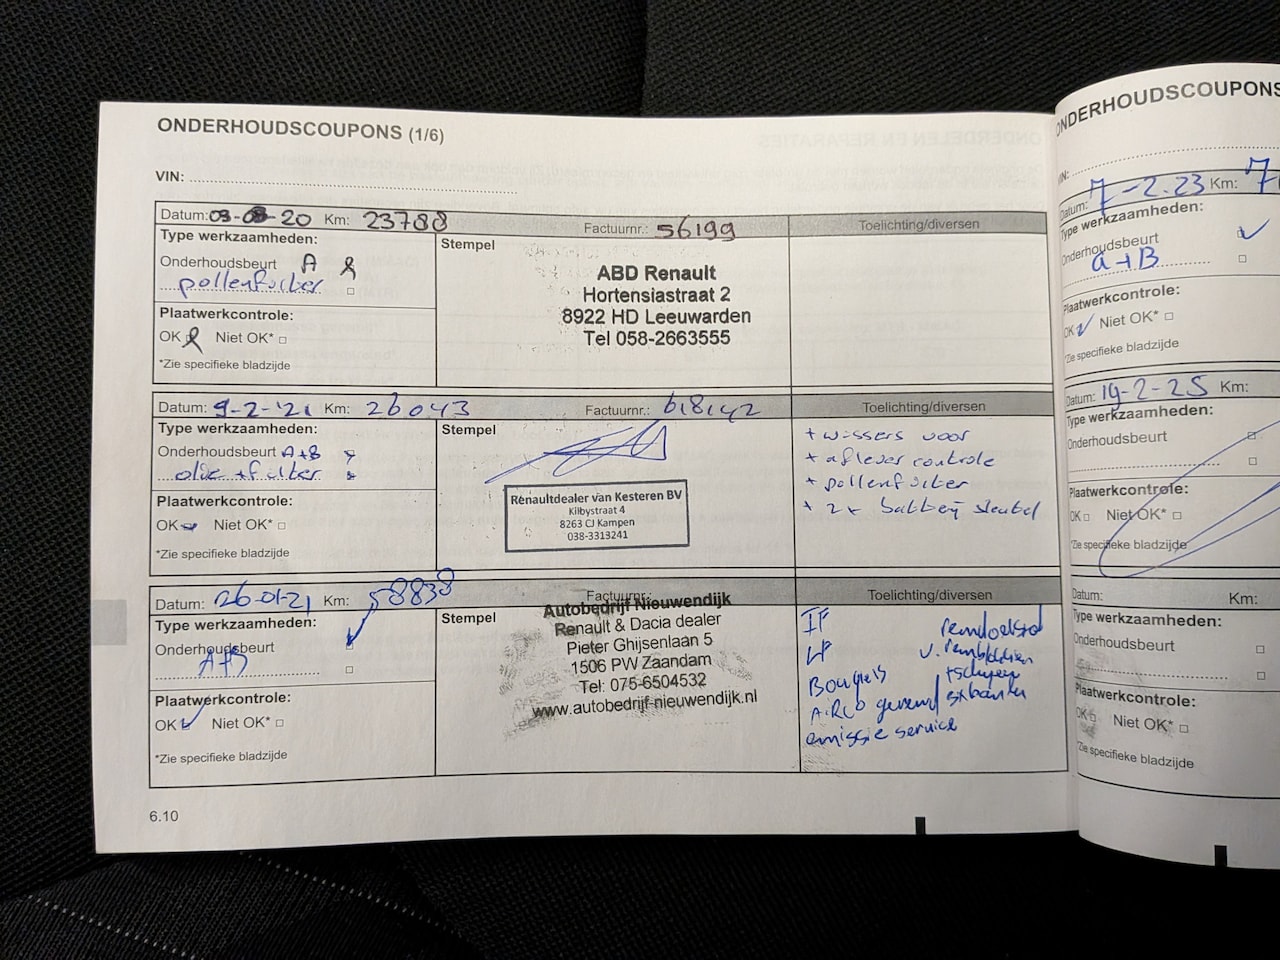 ONDERHOUDSCOUPONS (1/6)
VIN:
Datum: 03-08-20 Km: 23788 Factuurnr.: 56199 Toelichting/diversen
Type werkzaamheden:
Onderhoudsbeurt A
pollenfilter
Plaatwerkcontrole:
OK Niet OK*
*Zie specifieke bladzijde
Stempel
ABD Renault
Hortensiastraat 2
8922 HD Leeuwarden
Tel 058-2663555
Datum: 9-2-'21 Km: 26043 Factuurnr.: 618142 Toelichting/diversen
Type werkzaamheden:
Onderhoudsbeurt A+B
olie + filter
Plaatwerkcontrole:
OK Niet OK*
*Zie specifieke bladzijde
Stempel
Renaultdealer van Kesteren BV
Kilbystraat 4
8263 CJ Kampen
038-3313241
+ wissers voor
+ aflever controle
+ pollenfilter
+ 2x batterij sleutel
Datum: 26-01-21 Km: 58838 Factuurnr.: Toelichting/diversen
Type werkzaamheden:
Onderhoudsbeurt
A+B
Plaatwerkcontrole:
OK Niet OK*
*Zie specifieke bladzijde
Stempel
Autobedrijf Nieuwendijk
Renault & Dacia dealer
Pieter Ghijsenlaan 5
1506 PW Zaandam
Tel: 075-6504532
www.autobedrijf-nieuwendijk.nl
IF
LF
Bougies
AIRCO
emissie service
v. remblokken
6.10
ONDERHOUDSCOUPONS
VIN:
Datum: 7-2-23 Km:
Type werkzaamheden:
Onderhoudsbeurt
A+B
Plaatwerkcontrole:
OK Niet OK*
*Zie specifieke bladzijde
Datum: 19-2-25 Km:
Type werkzaamheden:
Onderhoudsbeurt
Plaatwerkcontrole:
OK Niet OK*
*Zie specifieke bladzijde
Datum: Km:
Type werkzaamheden:
Onderhoudsbeurt
Plaatwerkcontrole:
OK Niet OK*
*Zie specifieke bladzijde